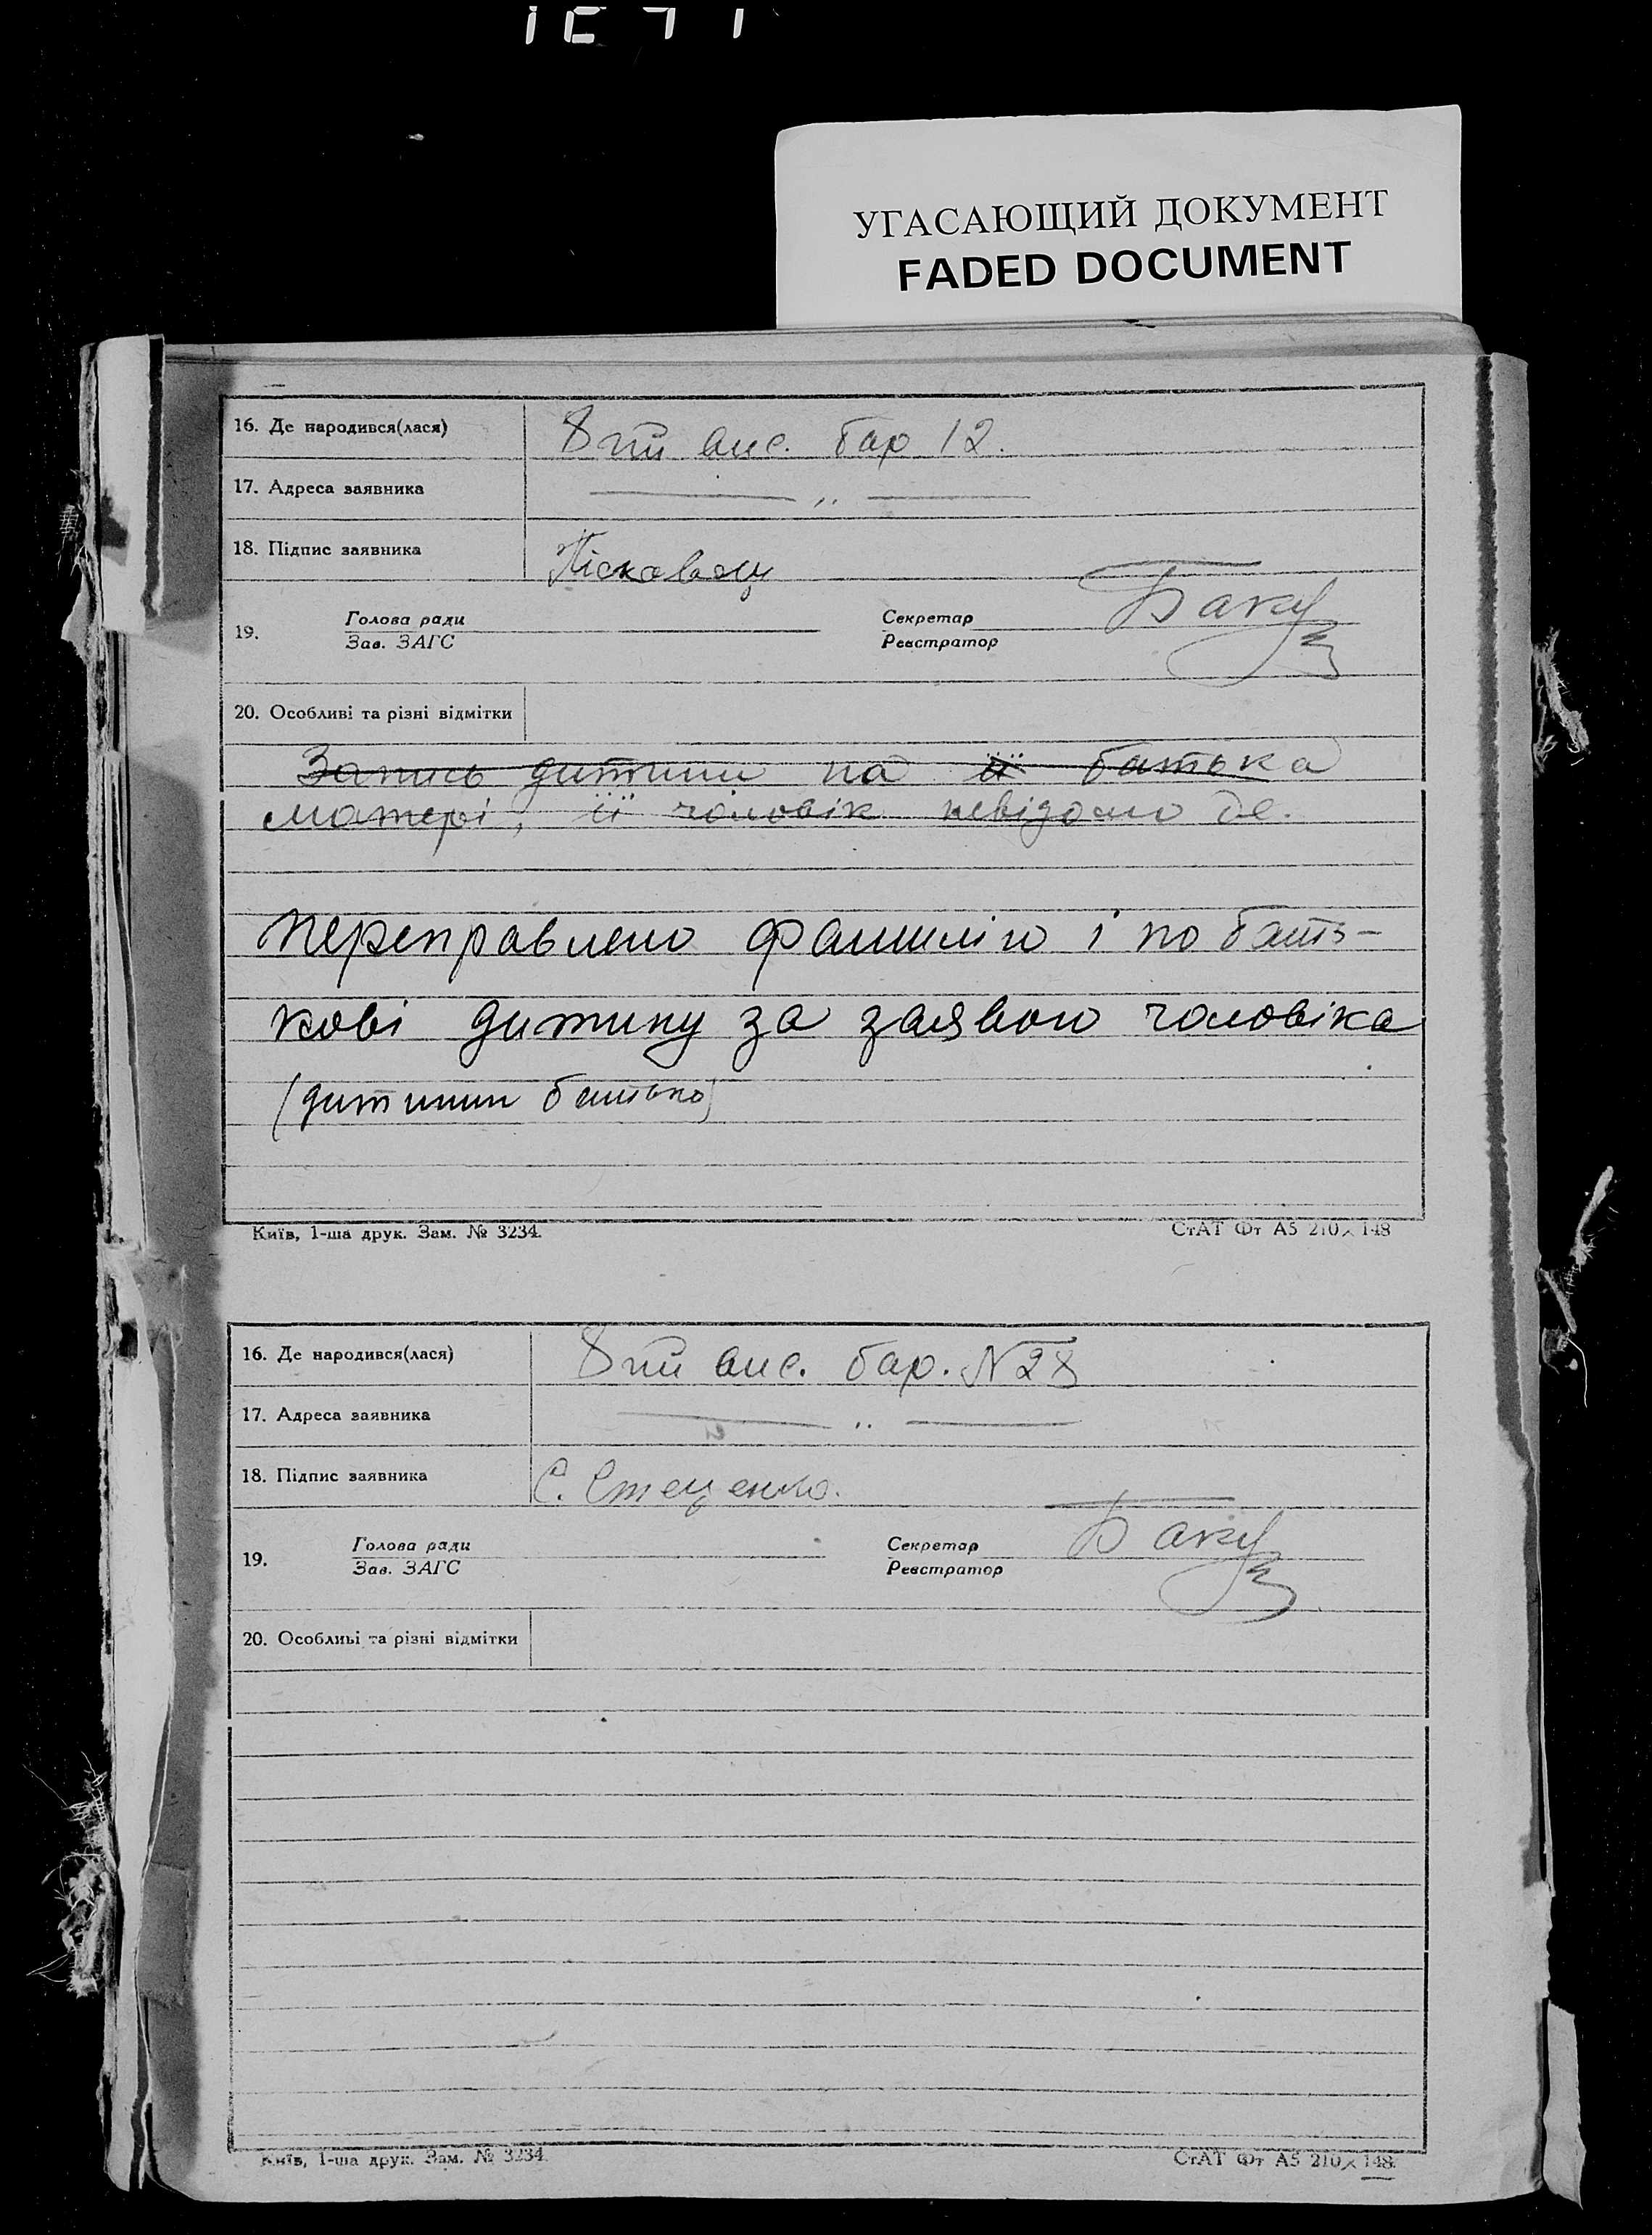 УГАСАЮЩИЙ ДОКУМЕНТ
FADED DOCUMENT
16. Де народився(лася) 8ми вис. бар 12.
17. Адреса заявника — „ —
18. Підпис заявника
19. Голова ради Секретар
Зав. ЗАГС Реєстратор
20. Особливі та різні відмітки
Запись дитини на її батька
матері, її чоловік невідомо де.
переправлено фамилію і по бать-
кові дитину за заявою чоловіка
(дитини батько)
Київ, 1-ша друк. Зам. № 3234. СтАТ Фт А5 210×148
16. Де народився(лася) 8ми вис. бар. N28
17. Адреса заявника — „ —
18. Підпис заявника С. Стеценко.
19. Голова ради Секретар
Зав. ЗАГС Реєстратор
20. Особливі та різні відмітки
Київ, 1-ша друк. Зам. № 3234. СтАТ Фт А5 210×148